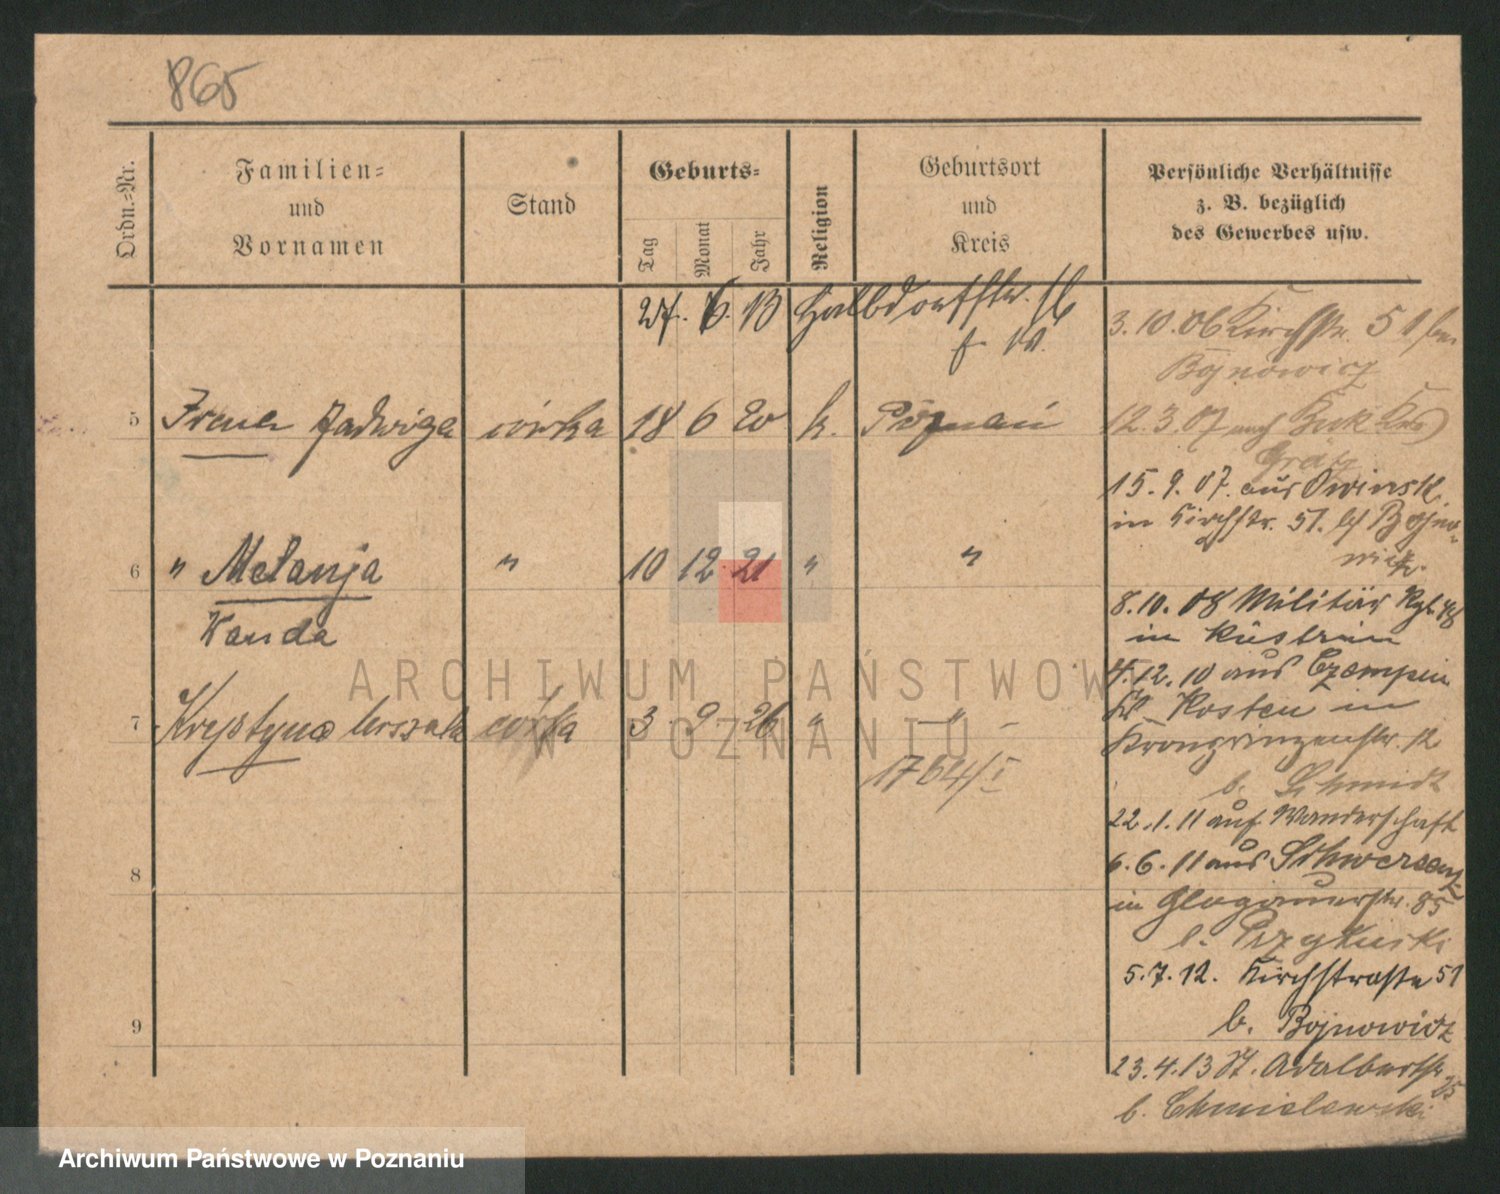 865
Ordn.-Nr.
Familien-
und
Vornamen
Stand
Geburts-
Tag
Monat
Jahr
Religion
Geburtsort
und
Kreis
Persönliche Verhältnisse
z. B. bezüglich
des Gewerbes usw.
27. 6. 13 Halbdorfstr. 16
3.10.06 Kirchstr. 51 bei
Bojnowicz
5 Irena Jadwiga córka 18 6 20 k. Poznań
12.3.07 nach Buk Krs
Grätz
15.9.07. aus Owinsk
in Kirchstr. 51. bei Bojno-
wicz.
6 " Melanja " 10 12 21 " "
Wanda
8.10.08 Militär Rgt. 48
in Küstrin
4.12.10 aus Czempin
Kr Kosten in
Kronprinzenstr. 12
b. Schmidt
7 Krystyna Urszula córka 3 9 26 " - " -
1764/I
22.1.11 auf Wanderschaft
6.6.11 aus Schwersenz
in Glogauerstr. 85
b.
8
5.7.12. Kirchstraße 51
b. Bojnowicz
9
23.4.13 St. Adalbertstr
25
b. Chmielewski
ARCHIWUM PAŃSTWOWE
W POZNANIU
Archiwum Państwowe w Poznaniu